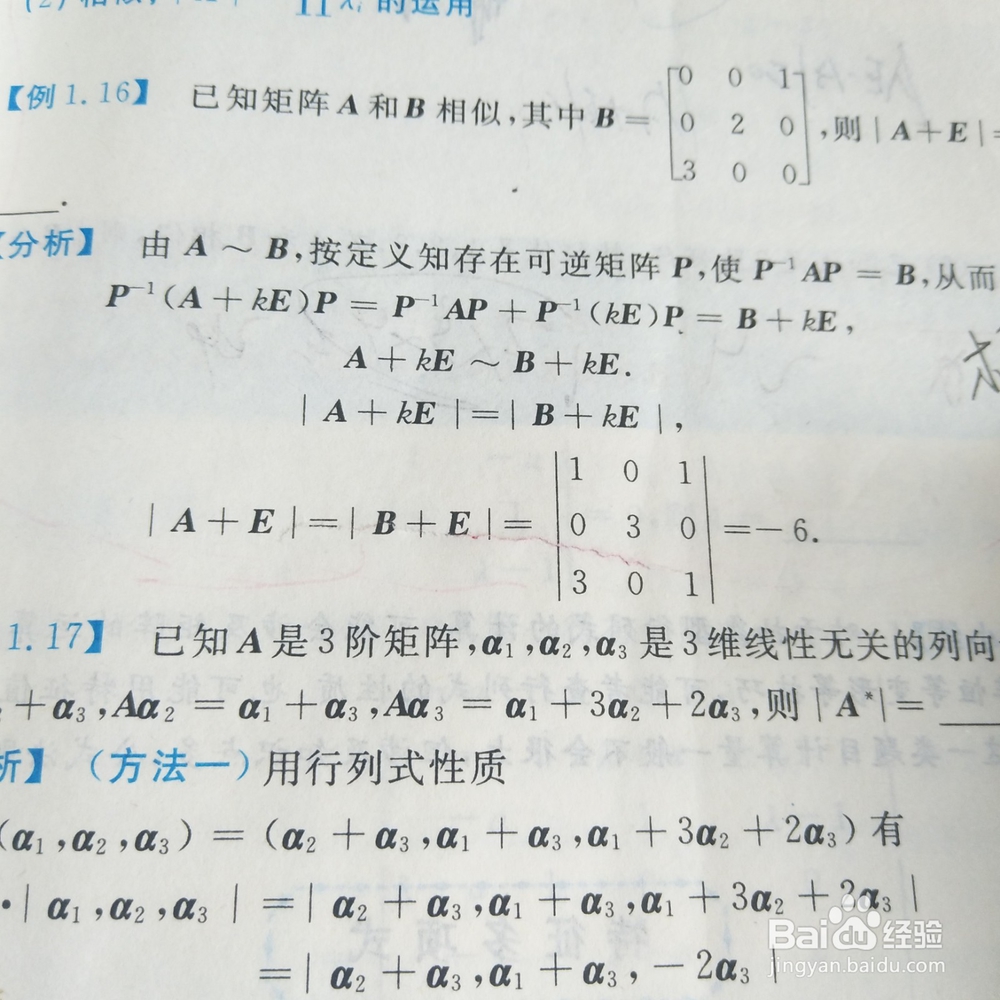 (2) 相似, 的运用
【例1.16】 已知矩阵 A 和 B 相似,其中 B = [0 0 1; 0 2 0; 3 0 0] ,则 | A + E | =
.
【分析】 由 A ~ B,按定义知存在可逆矩阵 P,使 P⁻¹AP = B,从而
P⁻¹(A + kE)P = P⁻¹AP + P⁻¹(kE)P = B + kE,
A + kE ~ B + kE.
| A + kE | = | B + kE |,
| A + E | = | B + E | = |1 0 1; 0 3 0; 3 0 1| = −6.
1.17】 已知 A 是 3 阶矩阵,α₁,α₂,α₃ 是 3 维线性无关的列向
+ α₃,Aα₂ = α₁ + α₃,Aα₃ = α₁ + 3α₂ + 2α₃,则 | A* | =
析】 (方法一)用行列式性质
(α₁,α₂,α₃) = (α₂ + α₃,α₁ + α₃,α₁ + 3α₂ + 2α₃) 有
· | α₁,α₂,α₃ | = | α₂ + α₃,α₁ + α₃,α₁ + 3α₂ + 2α₃ |
= | α₂ + α₃,α₁ + α₃, − 2α₃ |
Baidu经验
jingyan.baidu.com